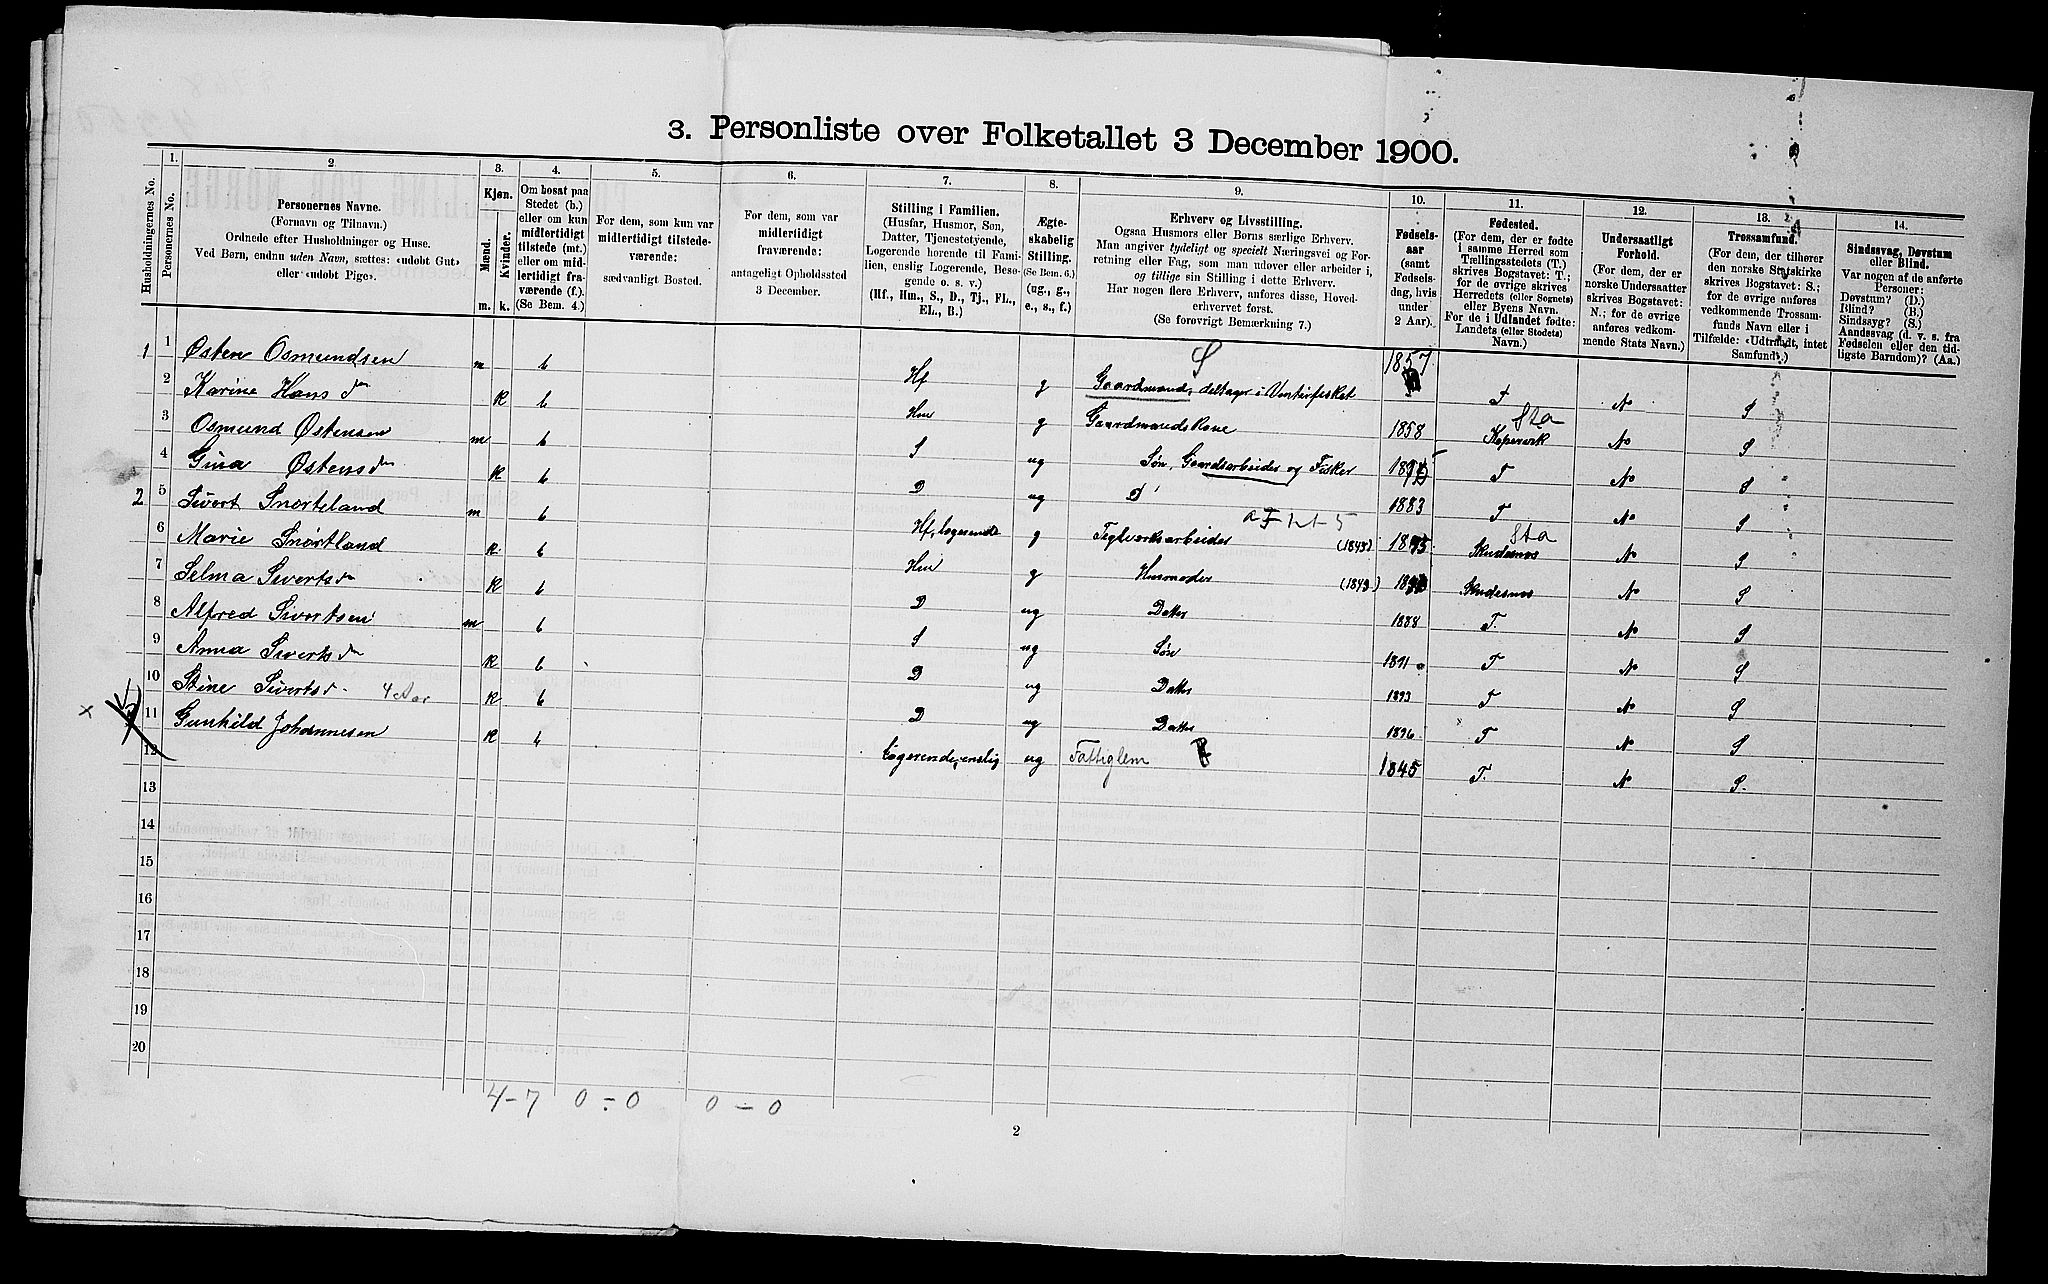 3. Personliste over Folketallet 3 December 1900.
Husholdningernes No.
1.
Personernes No.
2
Personernes Navne.
(Fornavn og Tilnavn.)
Ordnede efter Husholdninger og Huse.
Ved Børn, endnu uden Navn, sættes: «udøbt Gut»
eller «udøbt Pige».
3.
Kjøn.
Mænd.
Kvinder.
m.
k.
4.
Om bosat paa
Stedet (b.)
eller om kun
midlertidigt
tilstede (mt.)
eller om mid-
lertidigt fra-
værende (f.).
(Se Bem. 4.)
5.
For dem, som kun var
midlertidigt tilstede-
værende:
sædvanligt Bosted.
6.
For dem, som var
midlertidigt
fraværende:
antageligt Opholdssted
3 December.
7.
Stilling i Familien.
(Husfar, Husmor, Søn,
Datter, Tjenestetyende,
Logerende hørende til Fami-
lien, enslig Logerende, Besø-
gende o. s. v.)
(Hf., Hm., S., D., Tj., FL.,
EL., B.)
8.
Ægte-
skabelig
Stilling.
(Se Bem. 6.)
(ug., g.,
e., s., f.)
9.
Erhverv og Livsstilling.
Ogsaa Husmors eller Børns særlige Erhverv.
Man angiver tydeligt og specielt Næringsvei og For-
retning eller Fag, som man udøver eller arbeider i,
og tillige sin Stilling i dette Erhverv.
Har nogen flere Erhverv, anføres disse, Hoved-
erhvervet først.
(Se forøvrigt Bemærkning 7.)
10.
Fødsels-
aar
(samt
Fødsels-
dag, hvis
under
2 Aar).
11.
Fødested.
(For dem, der er fødte
i samme Herred som
Tællingsstedets (T.)
skrives Bogstavet: T.;
for de øvrige skrives
Herredets (eller Sognets)
eller Byens Navn.
For de i Udlandet fødte:
Landets (eller Stedets)
Navn.)
12.
Undersaatligt
Forhold.
(For dem, der er
norske Undersaatter
skrives Bogstavet:
N.; for de øvrige
anføres vedkom-
mende Stats Navn.)
13.
Trossamfund.
(For dem, der tilhører
den norske Statskirke
skrives Bogstavet: S.;
for de øvrige anføres
vedkommende Trossam-
funds Navn eller i
Tilfælde: «Udtraadt, intet
Samfund».)
14.
Sindssvag, Døvstum
eller Blind.
Var nogen af de anførte
Personer:
Døvstum? (D.)
Blind? (B.)
Sindssyg? (S.)
Aandssvag (d. v. s. fra
Fødselen eller den tid-
ligste Barndom)? (Aa.)
1 1 Østen Osmundsen m b Hf g Gaardmand, deltager i Vinterfisket 1857 T N S
S
2 Karine Hans dn k b Hm g Gaardmandskone 1858 Kopervik N S
Sta
3 Osmund Østensen m b S ug Søn, Gaardsarbeider og Fisker T N S
4 Gina Østens dn k b D ug D 1883 T N S
2 5 Sivert Snørteland m b Hf, logerende g Teglverksarbeider (1845) 1845 Skudesnes N S
Sta
6 Marie Snørtland k b Hm g Husmoder (1849) Skudesnes N S
7 Selma Siverts dn k b D ug Datter 1888 T. N S
8 Alfred Sivertsen m b S ug Søn 1891 T N S
9 Anna Siverts dn k b D ug Datter 1893 T N S
10 Stine Siverts d. 4 Aar k b D ug Datter 1896 T N S
x 11 Gunhild Johannesen k b Logerende, enslig ug Fattiglem 1845 T. N S.
12
13
14
15
16
17
18
19
20
4-7 0 ÷ 0 0 – 0
2